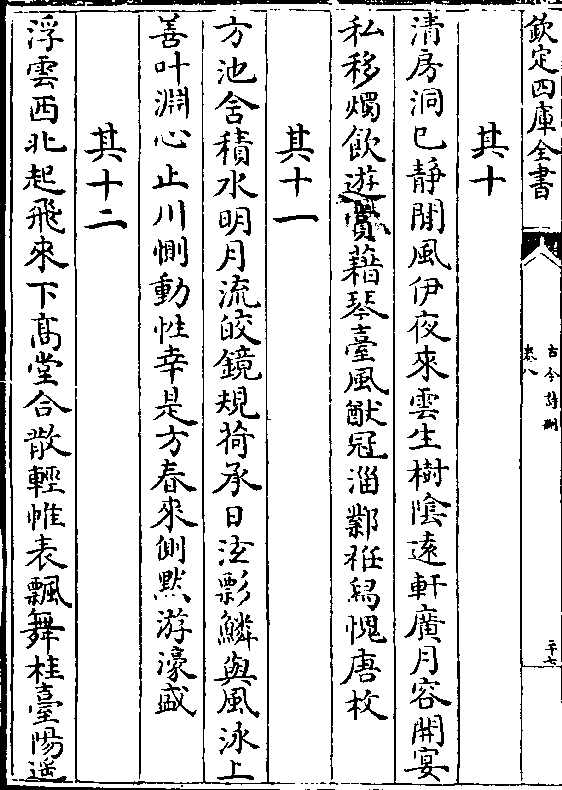 欽定四庫全書
古今詩刪
卷八
二十七
其十
清房洞已靜閒風伊夜來雲生樹陰遠軒廣月容開宴
私移燭飲遊賞藉琴臺風猷冠淄鄴衽舄愧唐枚
其十一
方池含積水明月流皎鏡規荷承日泫彯鱗與風泳上
善叶淵心止川惻動性幸是方春來側黙游濠盛
其十二
浮雲西北起飛來下髙堂合散輕帷表飄舞桂臺陽遥